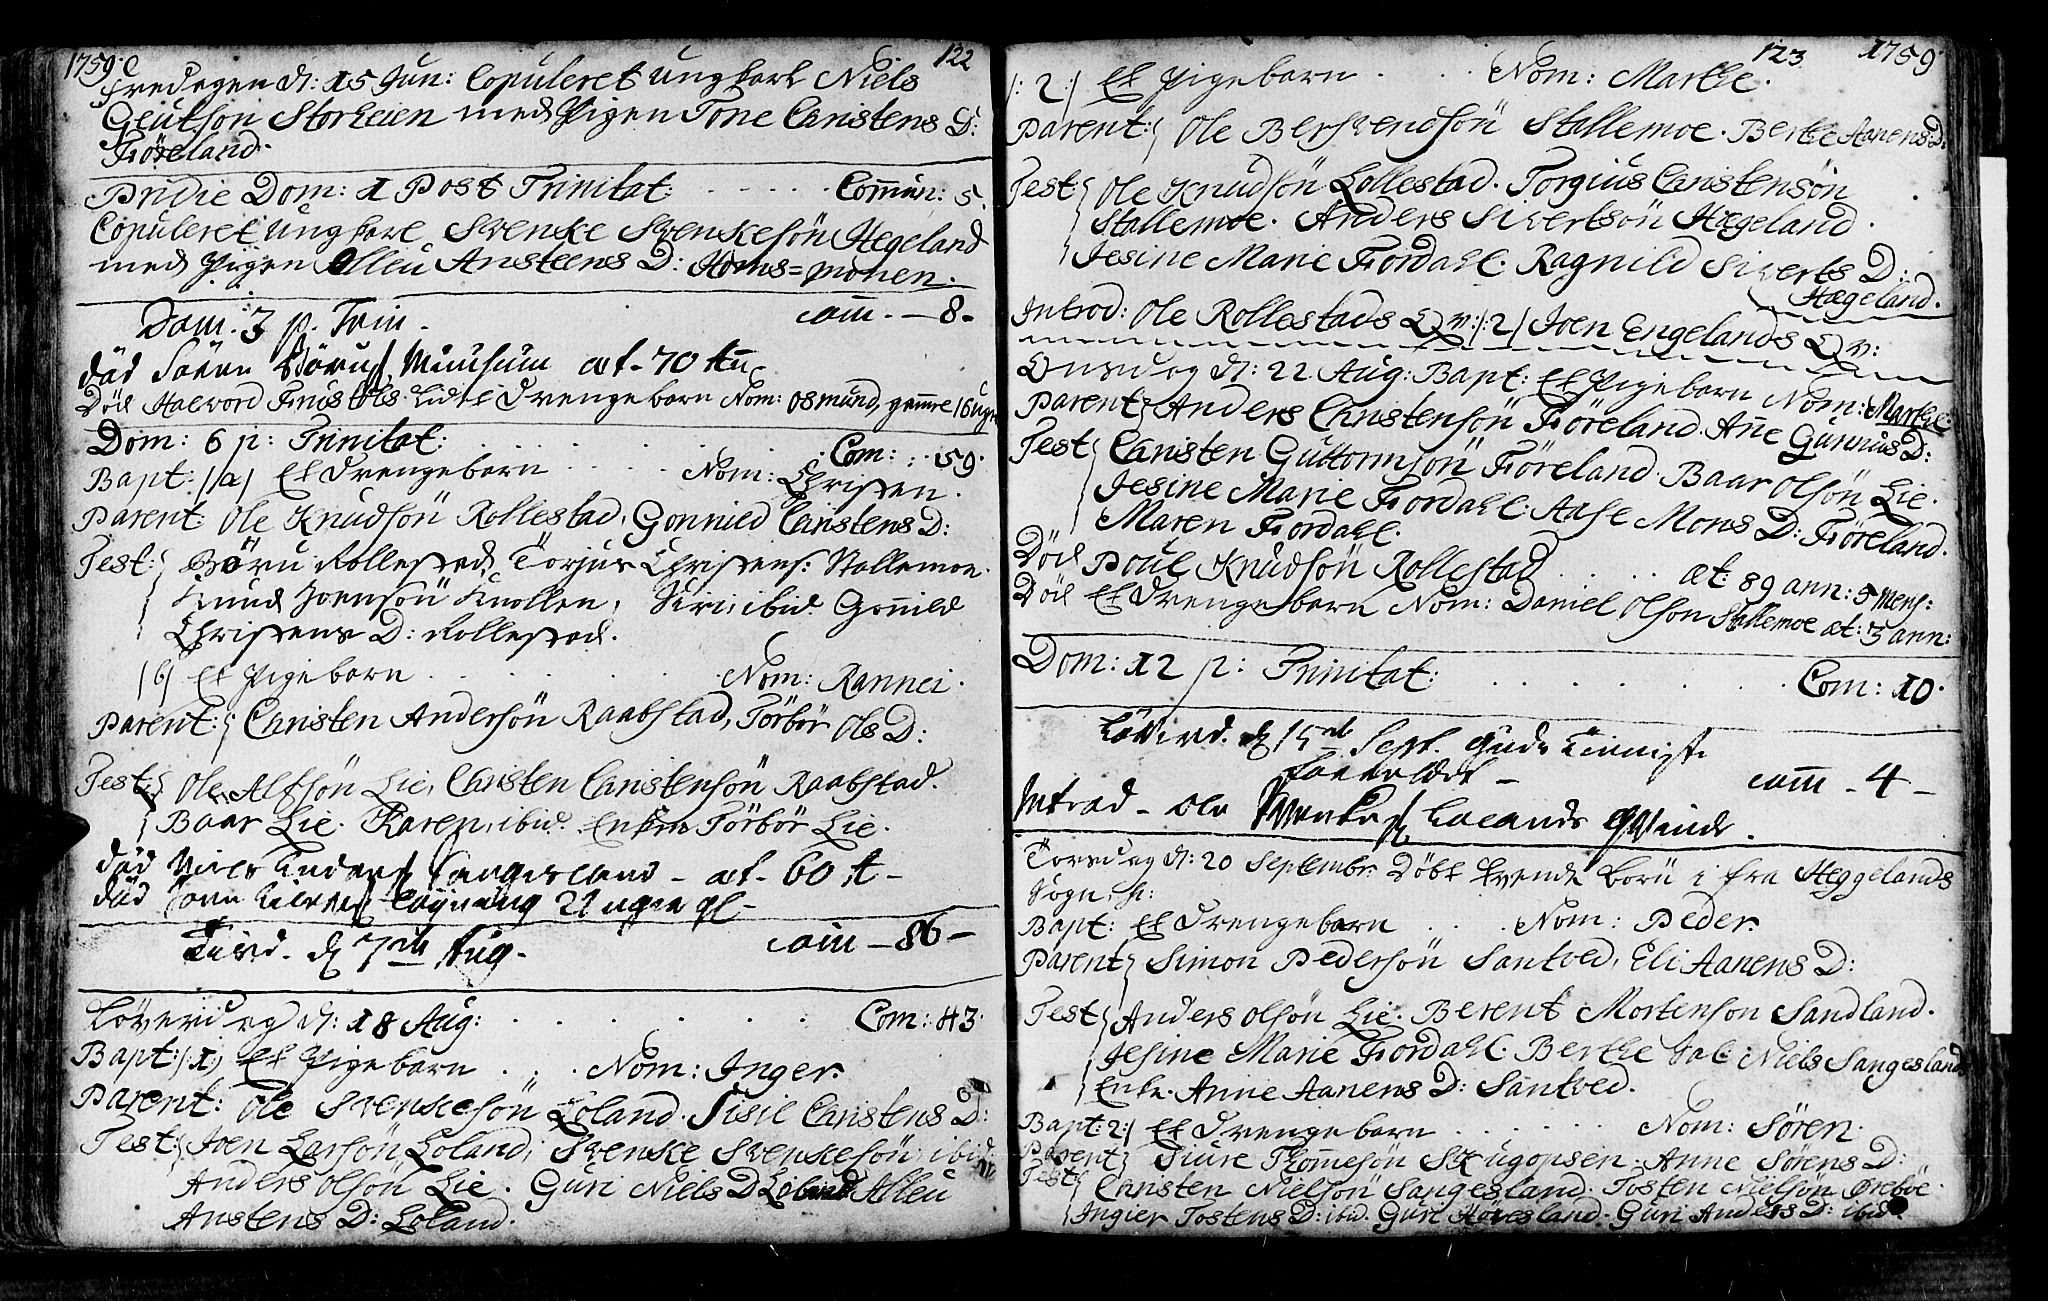 1759. 122
Fredagen d: 15 Jun: Copuleret Ungkarl Niels
Geutson Storheien med Pigen Tone Christens D:
Föreland.
Pridie Dom: 1 Post Trinitat: Com̄un: 5.
Copuleret Ungkarl Svenke Svenkesön Hegeland
med Pigen Alleu Ansteens D: Homs=mohen.
Dom. 3 p. Trin. com̄. - 8 -
död Sören æt - 70 An̄
Död Halvord Lidet Drengebarn Nom: Osmund, gam̄el 16 uger
Dom: 6 p: Trinitat: Com: 59.
Bapt: /a/ Et Drengebarn Nom: Christen.
Parent: Ole Knudsön Rollestad, Gonnied Christens D:
Test: Böru Rollestad, Torjus Christens: Stallemoe.
Knud Joensön Knollen, Siri ibid. Gonnild
Christens D: Rollestad.
/b/ Et Pigebarn Nom: Rannei.
Parent: Christen Andersön Raabstad, Törbör Ols D:
Test: Ole Alfsön Lie, Christen Christensön Raabstad.
Baar Lie. Karen, ibid. Enken Törbör Lie.
död Niels Sangesland - æt - 60 A -
död 22 uger gl -
Tirsd. d 7de Aug. com̄ - 86 -
Löverdag d: 18 Aug: Com: 43.
Bapt: /1/ Et Pigebarn Nom: Inger.
Parent: Ole Svenkesön Loland. Sisil Christens D:
Test: Joen Larsön Loland, Svenke Svenkesön, ibid:
Anders Olsön Lie. Guri Niels D Loland Alleu
Anstens D: Loland.
123 1759.
/: 2 :/ Et Pigebarn Nom: Marthe.
Parent: Ole Bersvendsön Stallemoe. Berthe Aanens D:
Test: Ole Knudsön Lollestad. Torgius Christensön
Stallemoe. Anders Sivertsön Hægeland.
Jesine Marie Fiordahl. Ragnild Siverts D:
Hægeland.
Introd: Ole Rollestads Qv: /2/ Joen Engelands Qv:
Onsdag d: 22 Aug: Bapt: Et Pigebarn Nom: Marthe.
Parent: Anders Christensön Föreland. An̄e Gunnus D:
Test: Christen Guttormsön Föreland. Baar Olsön Lie.
Jesine Marie Fiordahl. Aase Mons D: Föreland.
Maren Fiordahl.
Död Poul Knudsön Rollestad æt: 89 ann: 5 Mens:
Död Et Drengebarn Nom: Daniel Olsön Stallemoe æt: 3 ann:
Dom: 12 p: Trinitat: Com: 10.
Löverd. d 15de Sept. Gudz Tienniste
com̄ - 4 -
Introd - Ole Lolands Qvinde.
Torsdag d: 20 Septembr: Döbt tvende Börn i fra Heggelands
Sogn, N:
Bapt: Et Drengebarn Nom: Peder.
Parent: Simon Pedersön Santved, Eli Aanens D:
Test: Anders Olsön Lie. Berent Mortenson Sandland.
Jesine Marie Fiordahl. Berthe Sal: Niels Sangeslands
Enke. Anne Aanens D: Santved.
Bapt: 2:/ Et Drengebarn Nom: Sören.
Parent: Siure Tom̄esön Skugopsen. Anne Sörens D:
Test: Christen Nielsön Sangesland. Tosten Nielsön Öreböe.
Ingier Tostens D: ibid. Guri Höresland. Guri Anders D: ibid.